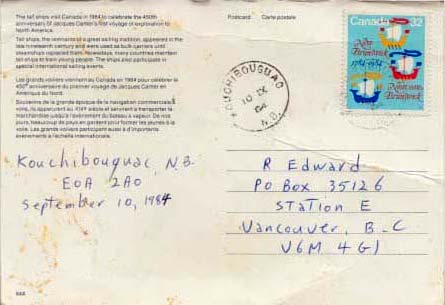 The tall ships visit Canada in 1984 to celebrate the 450th
anniversary of Jacques Cartier's first voyage of exploration to
North America.
Tall ships, the remnants of a great sailing tradition, appeared in the
late nineteenth century and were used as bulk carriers until
steamships replaced them. Nowadays, many countries maintain
tall ships to train young people. The ships also participate in
special international sailing events.
Les grands voiliers viennent au Canada en 1984 pour célébrer le
450e anniversaire du premier voyage de Jacques Cartier en
Amérique du Nord.
Souvenirs de la grande époque de la navigation commerciale à
voile, ils apparurent au XIXe siècle et servirent à transporter la
marchandise jusqu'à l'avènement du bateau à vapeur. De nos
jours, beaucoup de pays en gardent pour former les jeunes à la
voile. Les grands voiliers participent aussi à d'importants
événements à l'échelle internationale.
Kouchibouguac, N.B.
E0A 2A0
September 10, 1984
Postcard Carte postale
KOUCHIBOUGUAC
10 IX
84
N.B.
Canada 32
New
Brunswick
1784-1984
Nouveau
Brunswick
R Edward
PO Box 35126
Station E
Vancouver, B.C
V6M 4G1